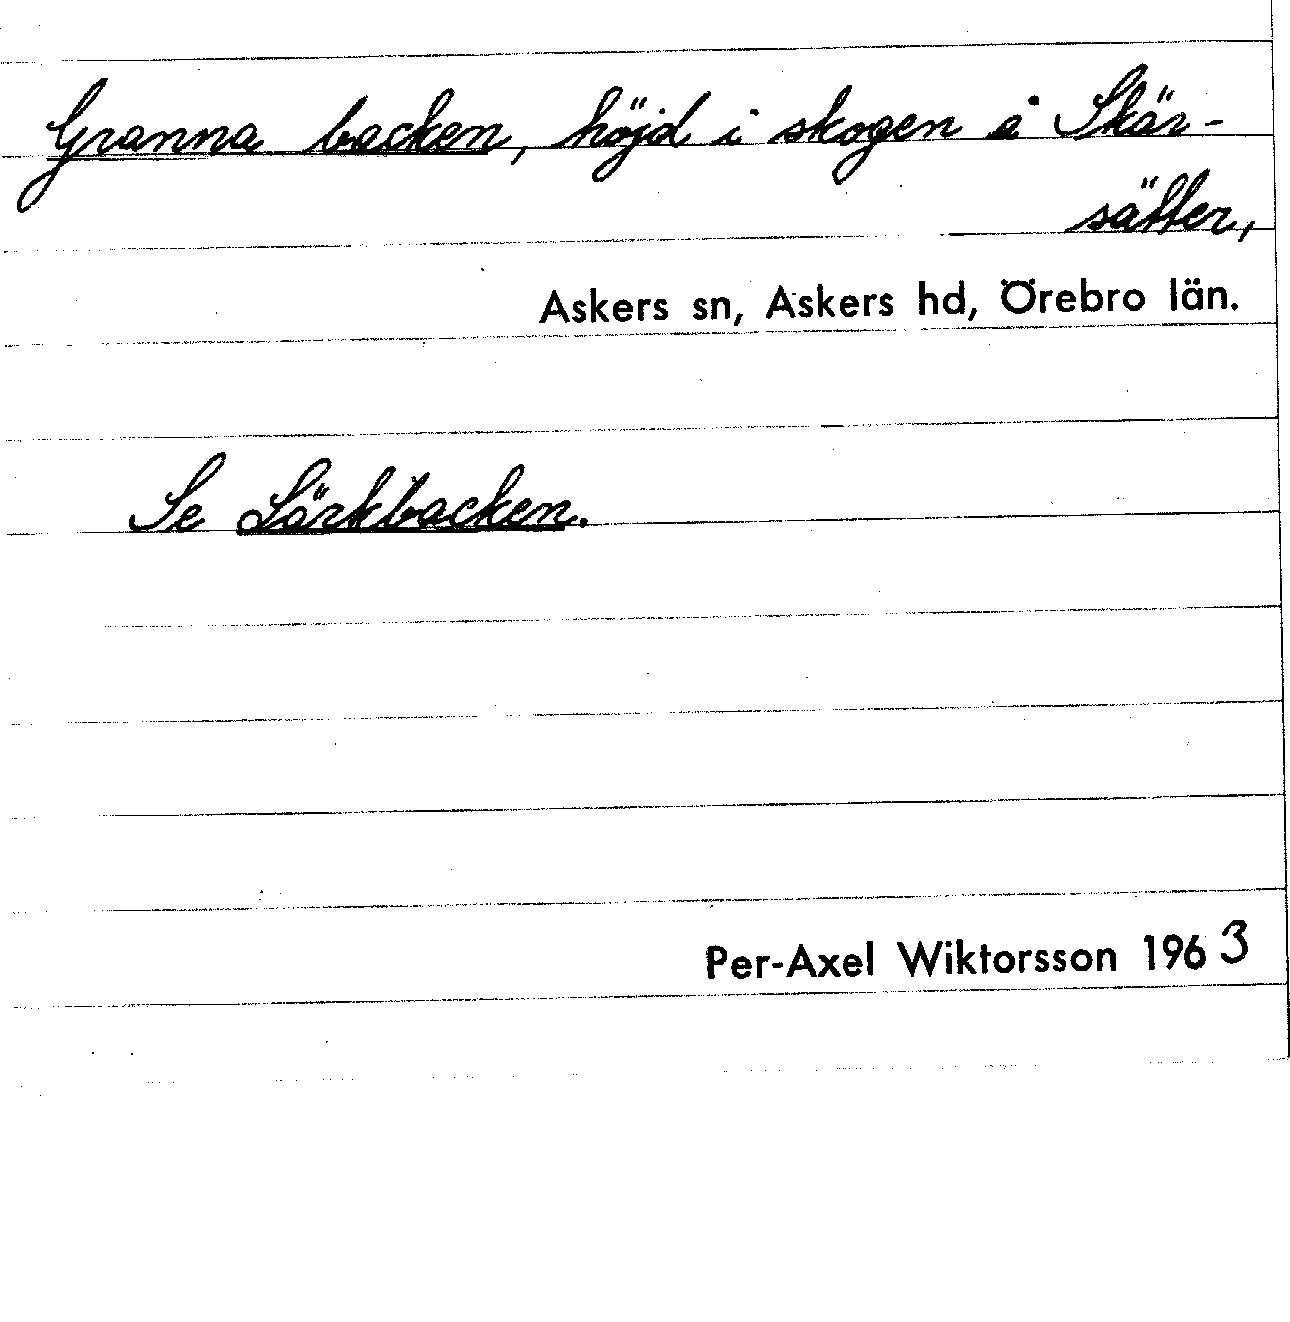 Granna backen, höjd i skogen å Skär-
sätter,
Askers sn, Askers hd, Örebro län.
Se Lärkbacken.
Per-Axel Wiktorsson 1963